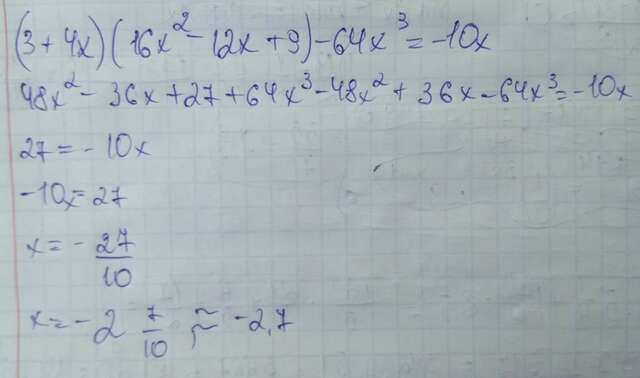 (3 + 4x)(16x² - 12x + 9) - 64x³ = -10x
48x² - 36x + 27 + 64x³ - 48x² + 36x - 64x³ = -10x
27 = -10x
-10x = 27
x = - 27/10
x = -2 7/10 ≈ -2,7